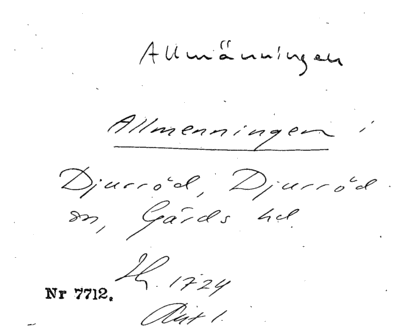 Allmänningen
Allmenningen i
Djurröd, Djurröd
sn, Gärds hd.
1724
Nr 7712.
Akt 1.